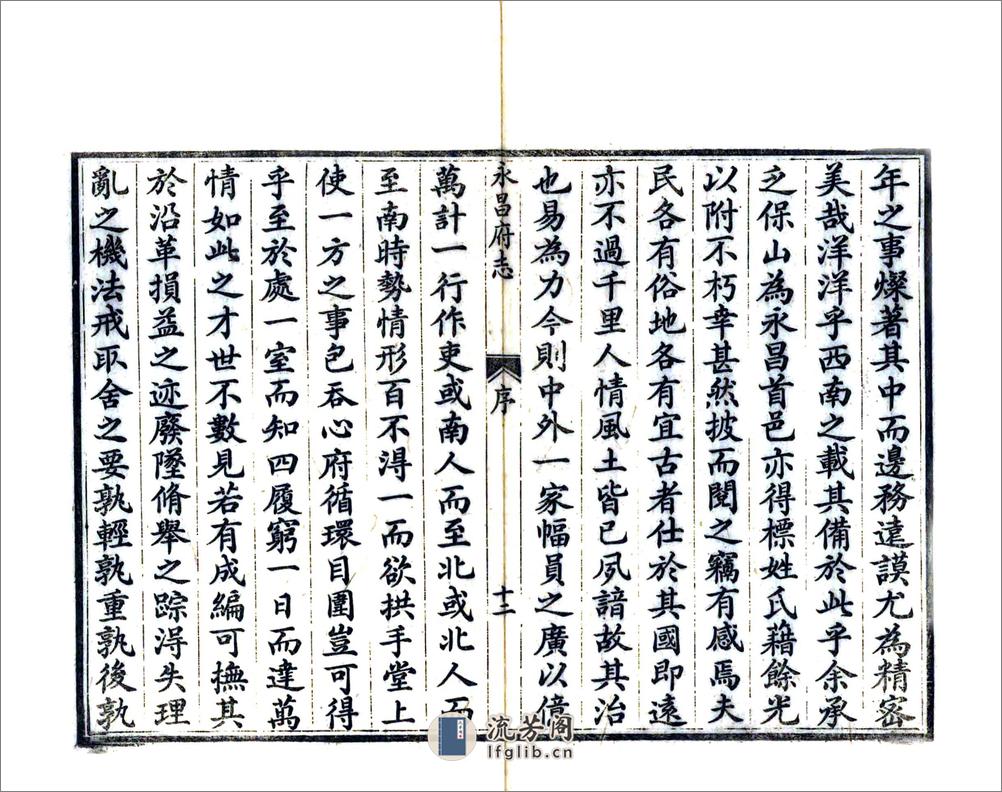 年之事燦著其中而邊務遠謨尤為精密
美哉洋洋乎西南之載其備於此乎余承
乏保山為永昌首邑亦得標姓氏藉餘光
以附不朽幸甚然披而閱之竊有感焉夫
民各有俗地各有宜古者仕於其國即遠
亦不過千里人情風土皆已夙諳故其治
也易為力今則中外一家幅員之廣以億
永昌府志
序
十二
萬計一行作吏或南人而至北或北人而
至南時勢情形百不得一而欲拱手堂上
使一方之事包吞心府循環目圍豈可得
乎至於處一室而知四履窮一日而達萬
情如此之才世不數見若有成編可撫其
於沿革損益之迹廢墜脩舉之踪得失理
亂之機法戒取舍之要孰輕孰重孰後孰
流芳阁
lfglib.cn